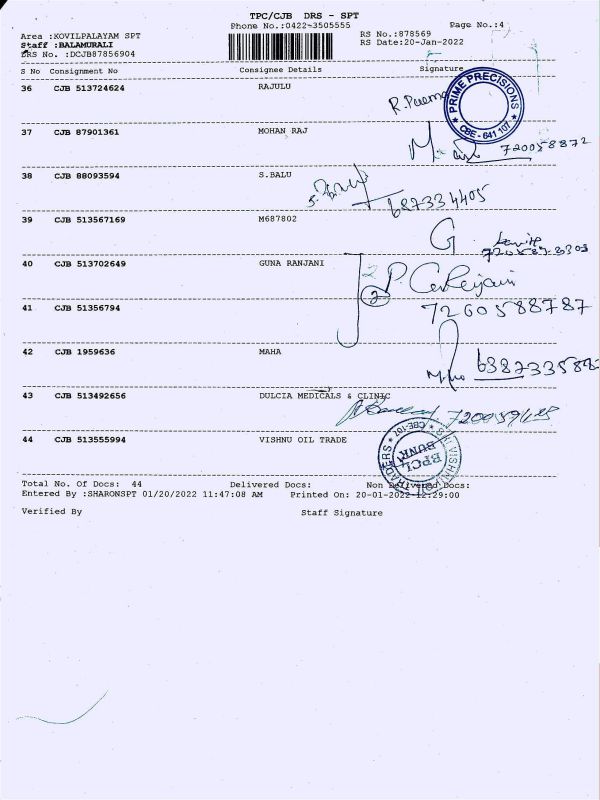 TPC/CJB DRS - SPT
Phone No.:0422-3505555 Page No.:4
Area :KOVILPALAYAM SPT RS No.:878569
Staff :BALAMURALI RS Date:20-Jan-2022
DRS No. :DCJB87856904
S No Consignment No Consignee Details Signature
36 CJB 513724624 RAJULU
PRIME PRECISIONS
CBE - 641 107
37 CJB 87901361 MOHAN RAJ
720058872
38 CJB 88093594 S.BALU
687334405
39 CJB 513567169 M687802
G
40 CJB 513702649 GUNA RANJANI
2
41 CJB 51356794
7260588787
42 CJB 1959636 MAHA
43 CJB 513492656 DULCIA MEDICALS & CLINIC
44 CJB 513555994 VISHNU OIL TRADE
SRI VISHNU OIL TRADERS
CBE-107
BPCL BUNK
Total No. Of Docs: 44 Delivered Docs: Non Delivered Docs:
Entered By :SHARONSPT 01/20/2022 11:47:08 AM Printed On: 20-01-2022 12:29:00
Verified By Staff Signature